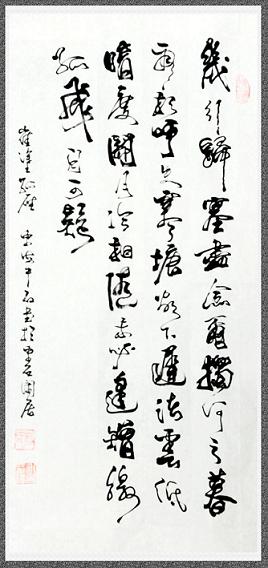 幾行歸塞盡念爾獨何之暮
雨相呼失寒塘欲下遲渚雲低
暗度關月冷相隨未必逢矰繳
孤飛自可疑
崔塗孤雁